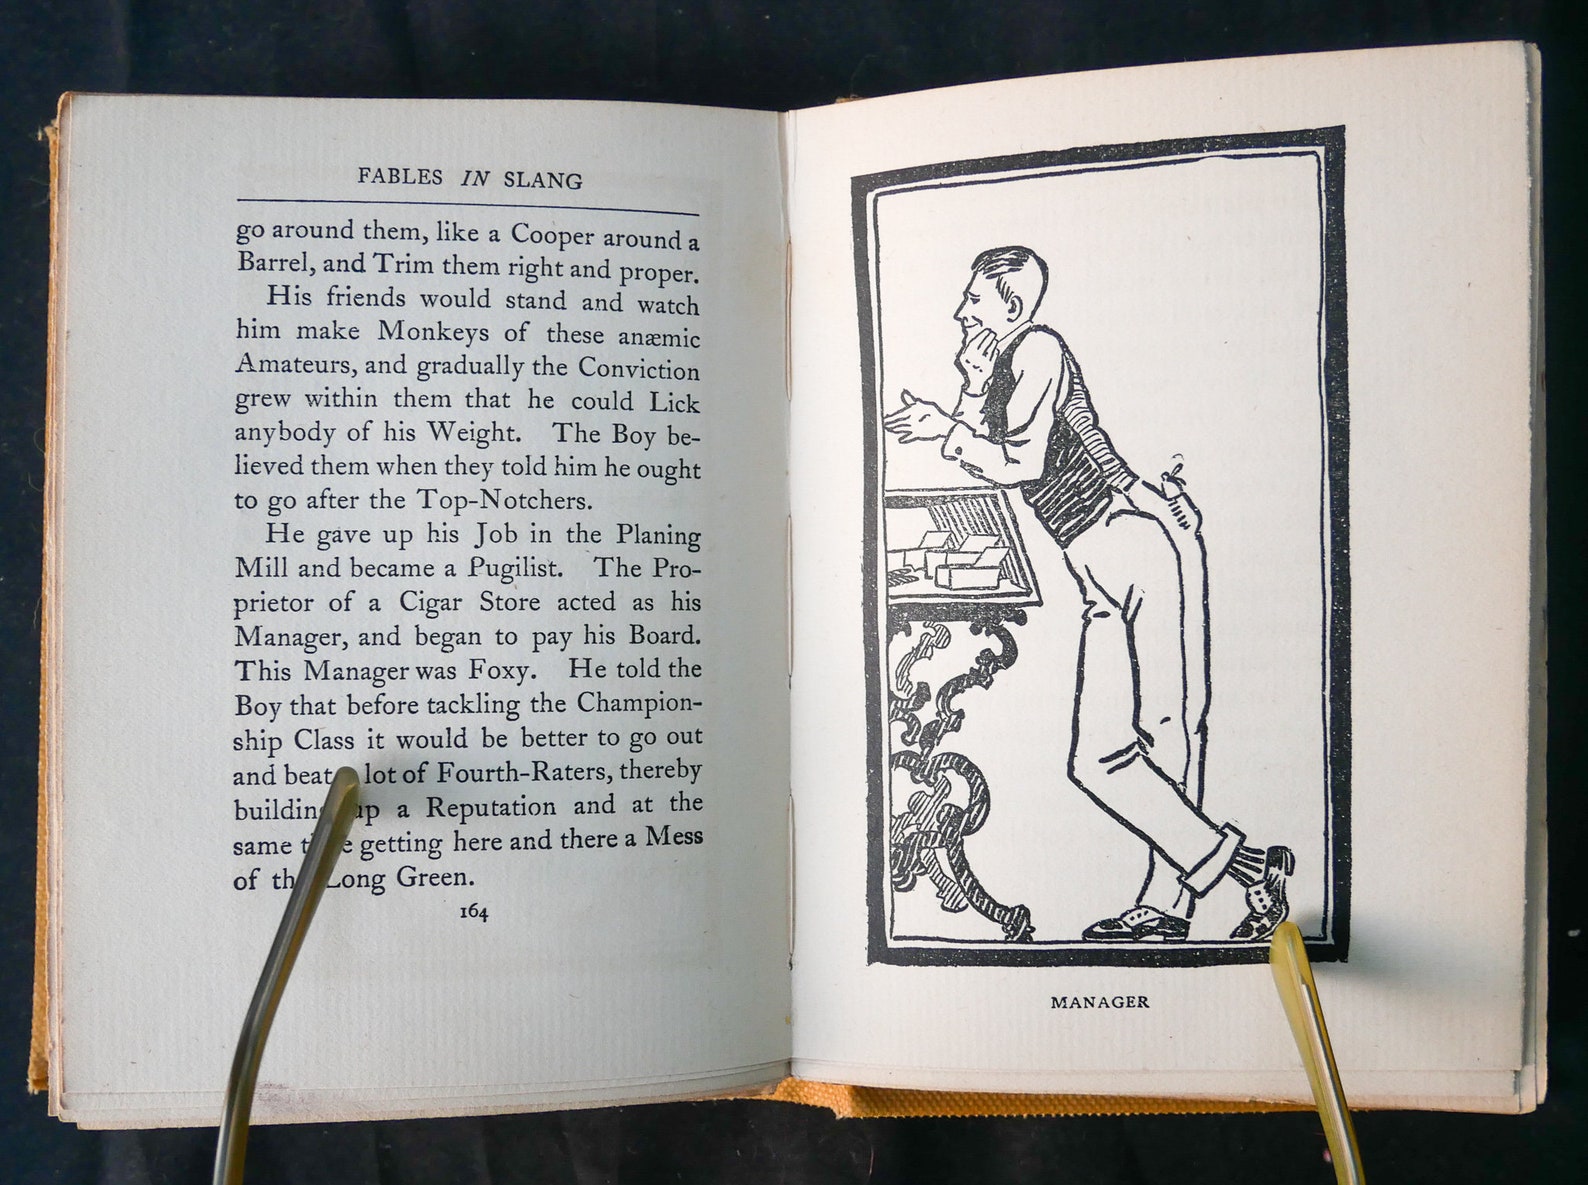 FABLES IN SLANG
go around them, like a Cooper around a
Barrel, and Trim them right and proper.
His friends would stand and watch
him make Monkeys of these anæmic
Amateurs, and gradually the Conviction
grew within them that he could Lick
anybody of his Weight. The Boy be-
lieved them when they told him he ought
to go after the Top-Notchers.
He gave up his Job in the Planing
Mill and became a Pugilist. The Pro-
prietor of a Cigar Store acted as his
Manager, and began to pay his Board.
This Manager was Foxy. He told the
Boy that before tackling the Champion-
ship Class it would be better to go out
and beat lot of Fourth-Raters, thereby
building up a Reputation and at the
same getting here and there a Mess
of Long Green.
164
MANAGER